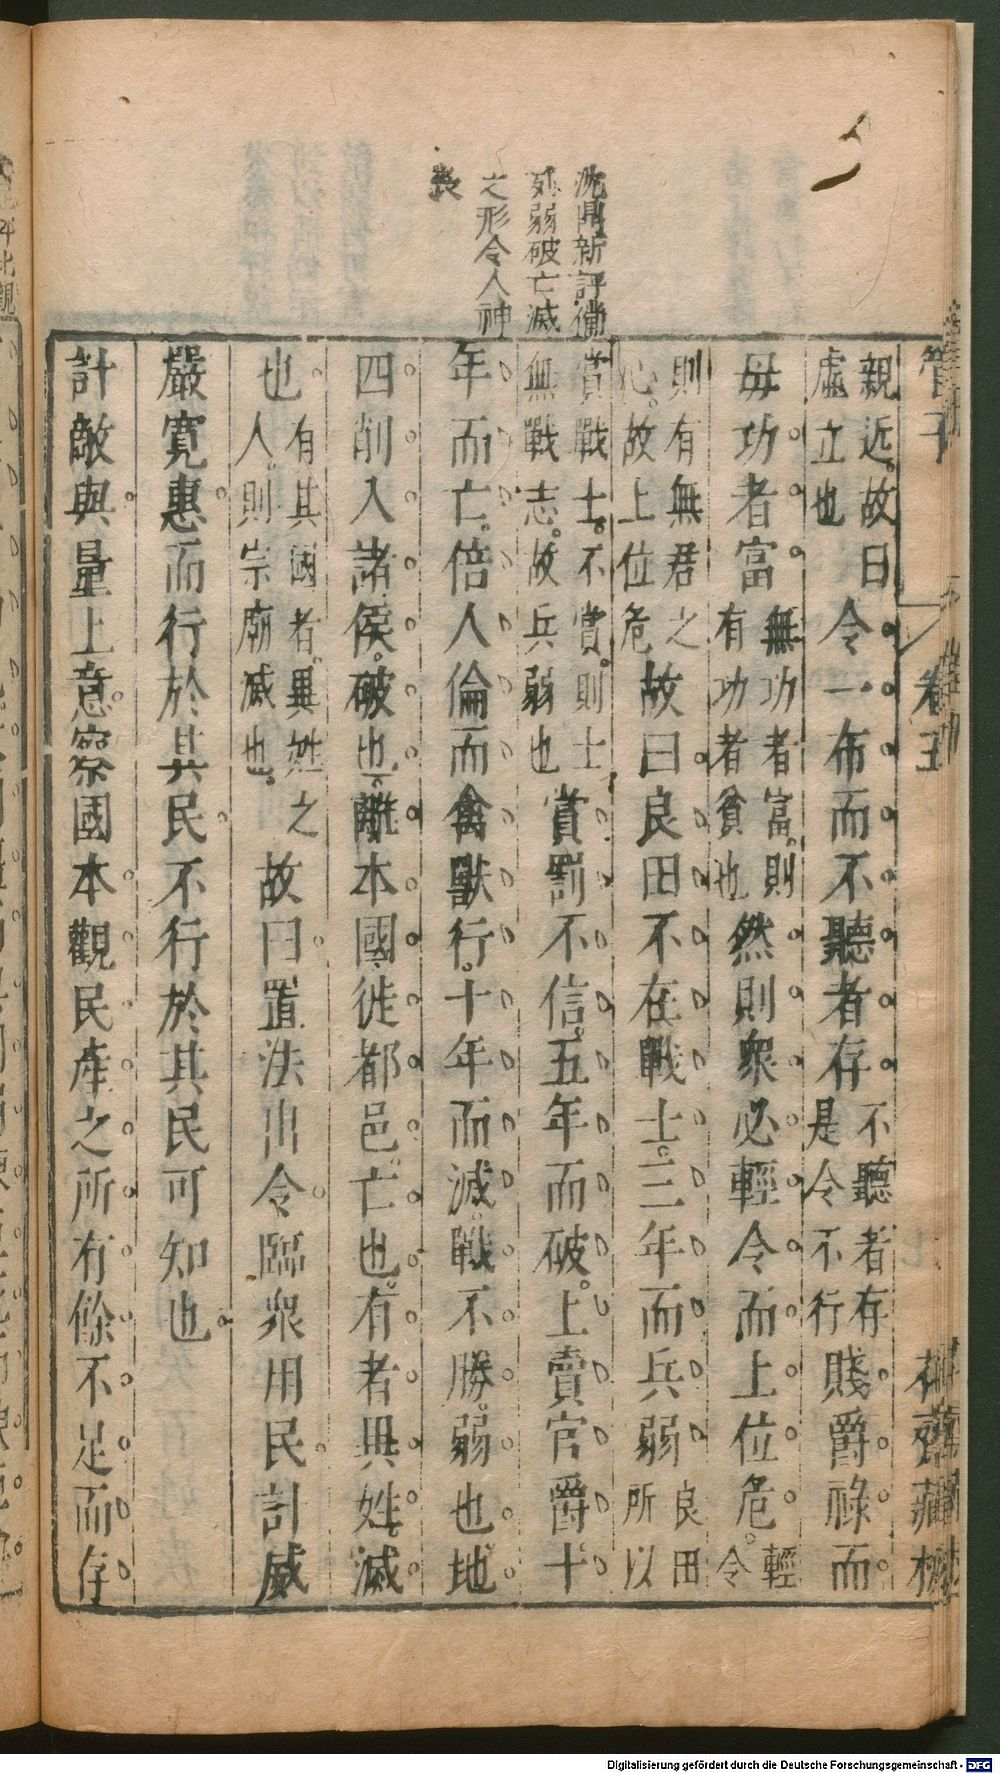 管子
卷五
花齋藏板
沈鼎新評備
列弱破亡滅
之形令人神
喪
親近故曰
虛立也
令一布而不聽者存
不聽者存
是令不行
賤爵祿而
毋功者富
無功者富則
有功者貧也
然則衆必輕令而上位危
輕
令
則有無君之
心故上位危
故曰良田不在戰士三年而兵弱
良田
所以
賞戰士不賞則士
無戰志故兵弱也
賞罰不信五年而破上賣官爵十
年而亡倍人倫而禽獸行十年而滅戰不勝弱也地
四削入諸侯破也離本國徙都邑亡也有者異姓滅
也
有其國者異姓之
人則宗廟滅也
故曰置法出令臨衆用民計威
嚴寬惠而行於其民不行於其民可知也
計敵與量上意察國本觀民產之所有餘不足而存
Digitalisierung gefördert durch die Deutsche Forschungsgemeinschaft - DFG